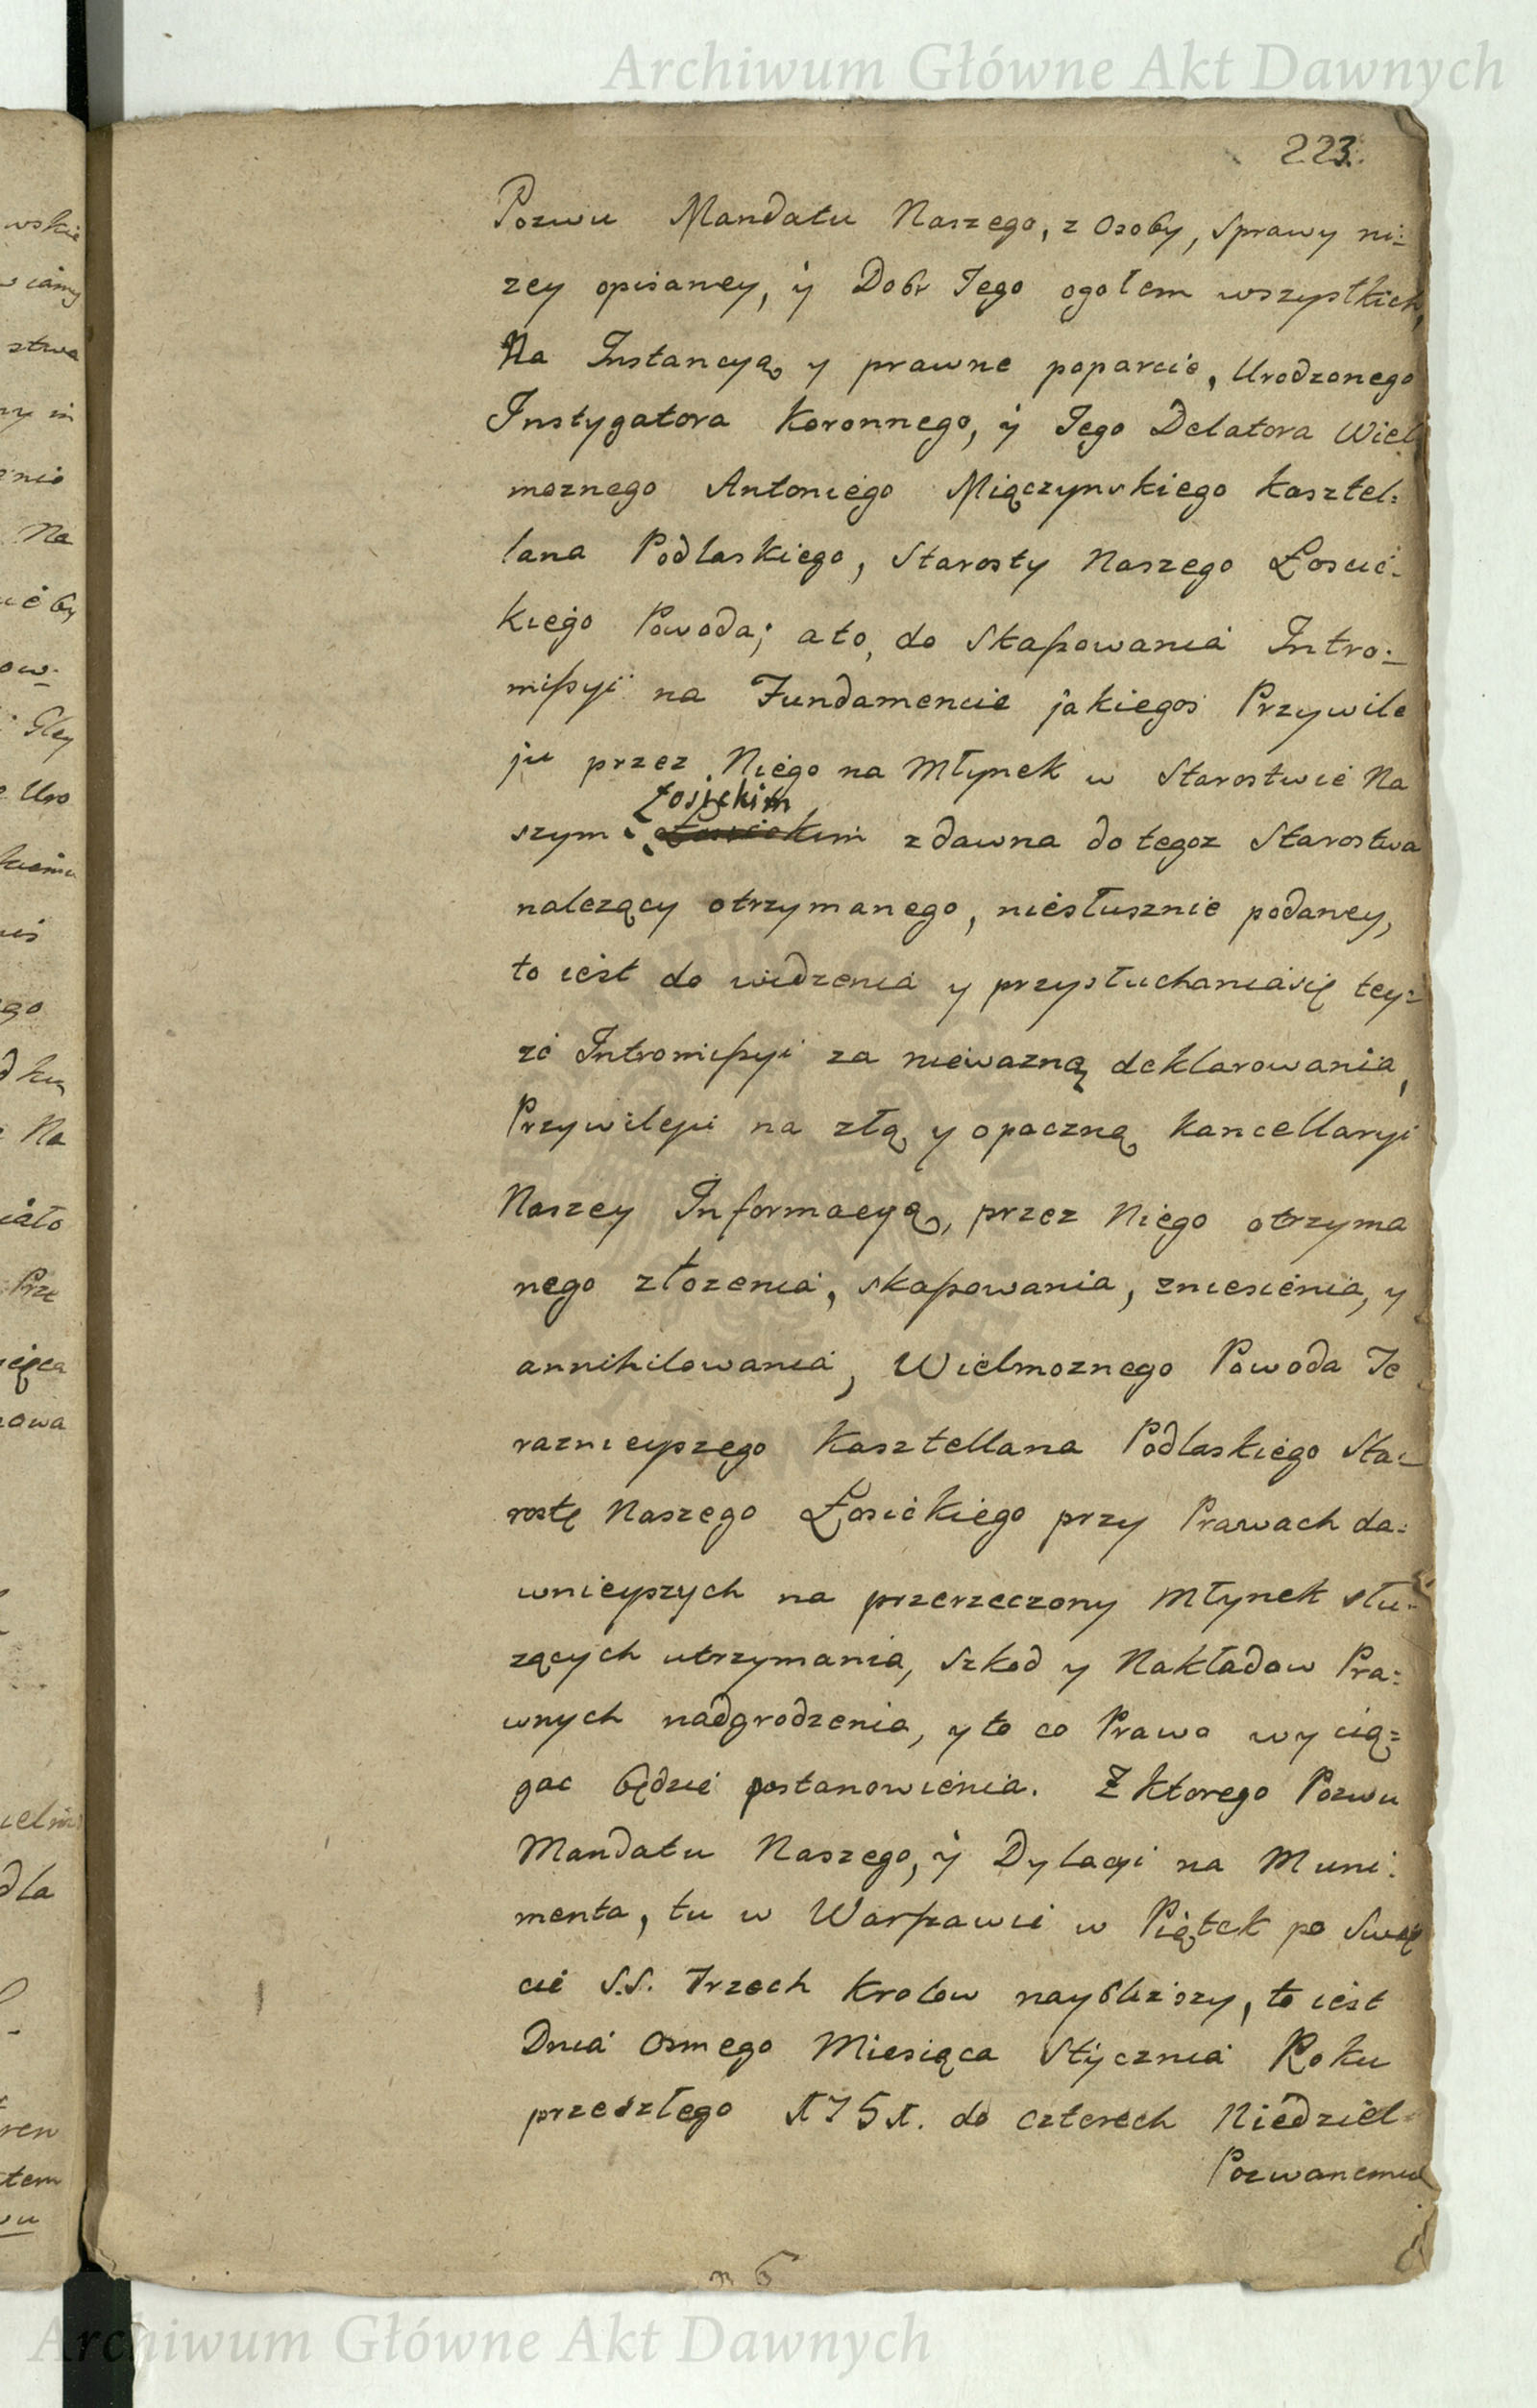 Archiwum Główne Akt Dawnych
223.
Pozwu Mandatu Naszego, z Osoby, Sprawy ni=
zey opisaney, ÿ Dobr Jego ogołem wszystkich,
Na Instancyą y prawne poparcie, Urodzonego
Instygatora Koronnego, ÿ Jego Delatora Wiel
moznego Antoniego Miączynskiego Kasztel=
lana Podlaskiego, Starosty Naszego Łosic=
kiego Powoda; a to, do Skassowania Intro=
missyi na Fundamencie jakiegos Przywile
ju przez Niego na Młynek w Starostwie Na
Łosickim
szym zdawna do tegoz Starostwa
nalezący otrzymanego, niesłusznie podaney,
to iest do widzenia y przysłuchania się tey=
ze Intromissyi za niewazną deklarowania,
Przywileju na złą y opaczną Kancellaryi
Naszey Informacyą, przez Niego otrzyma
nego złozenia, skassowania, zniesienia, y
annihilowania, Wielmoznego Powoda Te
raznieyszego Kasztellana Podlaskiego Sta=
rostę Naszego Łosickiego przy Prawach da=
wnieyszych na przerzeczony Młynek słu=
zących utrzymania, Szkod y Nakładow Pra=
wnych nadgrodzenia, y to co Prawo wycią=
gac będzie postanowienia. Z ktorego Pozwu
Mandatu Naszego, ÿ Dylacyi na Muni=
menta, tu w Warszawie w Piątek po Swię
cie S.S. Trzech Krolow nayblizszy, to iest
Dnia Osmego Miesiąca Stycznia Roku
przeszłego 1751. do czterech Niedziel
Pozwanemu
Archiwum Główne Akt Dawnych